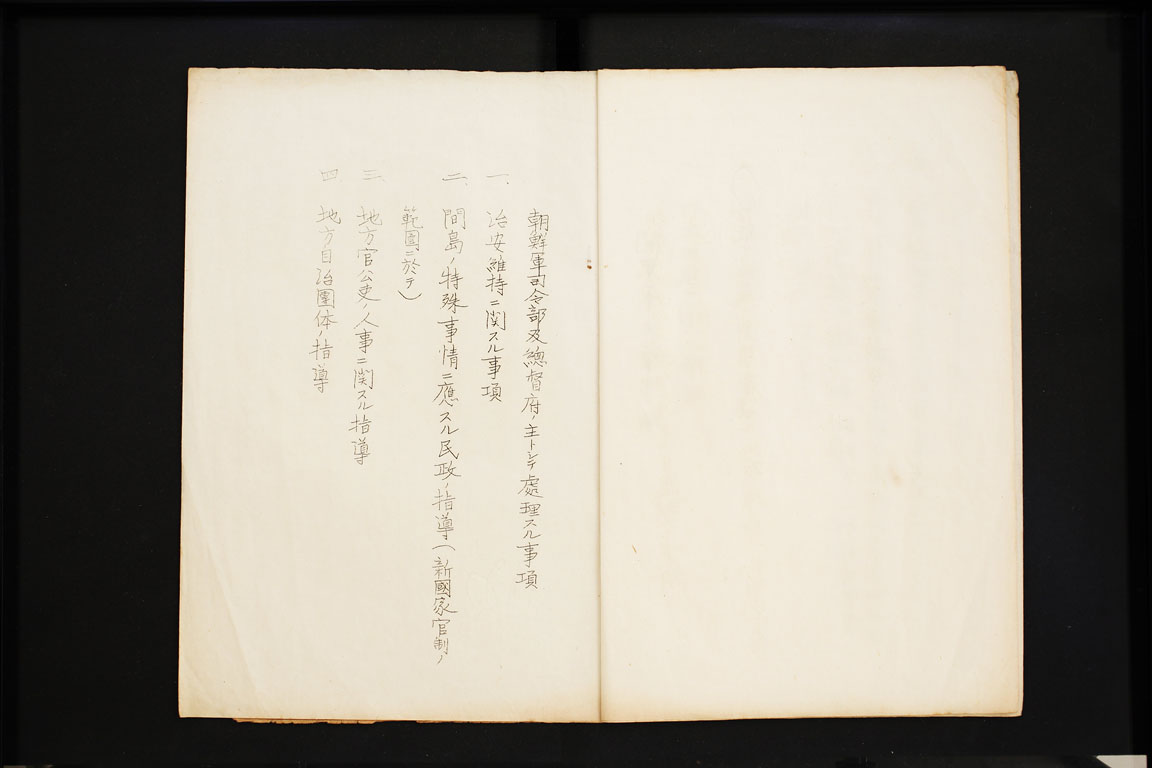 朝鮮軍司令部及總督府ノ主トシテ處理スル事項
一、治安維持ニ関スル事項
二、間島ノ特殊事情ニ應スル民政ノ指導（新國家官制ノ
範圍ニ於テ）
三、地方官公吏ノ人事ニ関スル指導
四、地方自治團体ノ指導